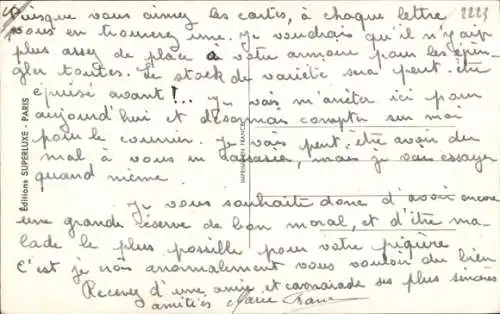 2223
Puisque vous aimez les cartes, à chaque lettre
vous en trouverez une. Je voudrais qu'il n'y ait
plus assez de place à votre armoire pour les épin-
gler toutes. Le stock de variété sera peut-être
épuisé avant !... Je vais m'arrêter ici pour
aujourd'hui et désormais comptez sur moi
pour le courrier. Je vais peut-être avoir du
mal à vous en, mais je vais essayer
quand même.
Je vous souhaite donc d'avoir encore
une grande réserve de bon moral, et d'être ma-
lade le plus possible pour votre piqûre
C'est je vois anormalement vous vouloir du bien
Recevez d'une amie et camarade ses plus sincères
amitiés
Éditions SUPERLUXE - PARIS
IMPRIMERIE FRANÇAISE